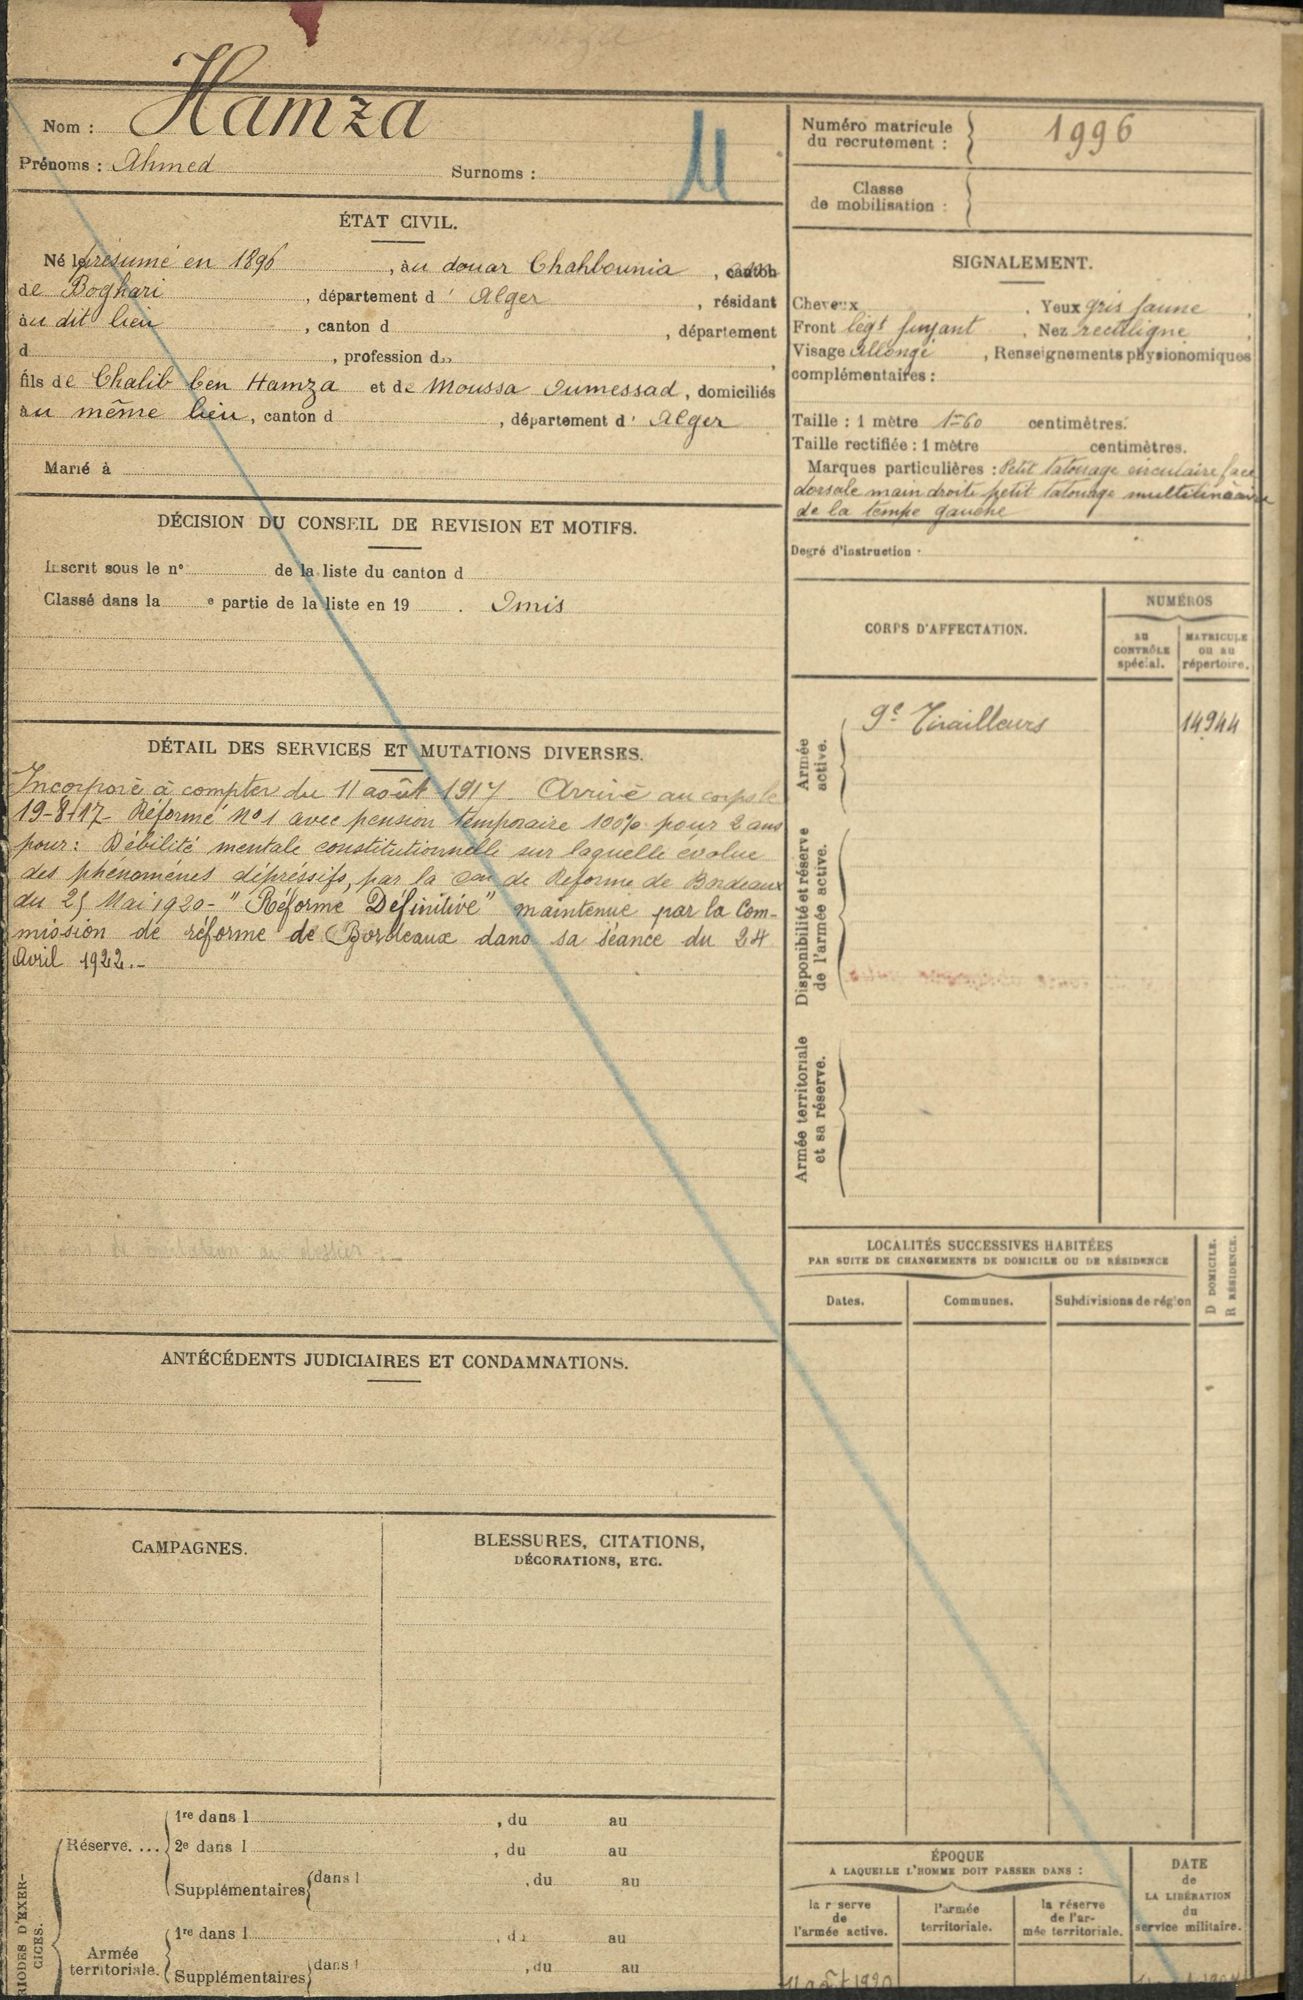 Nom : Hamza
Prénoms : Ahmed Surnoms :
11
ÉTAT CIVIL.
Né le présumé en 1896, àu douar Chahbounia, canton
de Boghari, département d' Alger, résidant
àu dit lieu, canton d, département
d, profession d
fils de Chalib ben Hamza et de Moussa Oumessad, domiciliés
àu même lieu, canton d, département d' Alger
Marié à
DÉCISION DU CONSEIL DE REVISION ET MOTIFS.
Inscrit sous le n° de la liste du canton d
Classé dans la e partie de la liste en 19 . Omis
DÉTAIL DES SERVICES ET MUTATIONS DIVERSES.
Incorporé à compter du 11 août 1917. Arrivé au corps le
19-8-17. Réformé n°1 avec pension temporaire 100% pour 2 ans
pour : Débilité mentale constitutionnelle sur laquelle évolue
des phénomènes dépréssifs, par la Con de Réforme de Bordeaux
du 25 Mai 1920 - "Réforme Définitive" maintenue par la Com-
mission de réforme de Bordeaux dans sa séance du 24
Avril 1922.-
ANTÉCÉDENTS JUDICIAIRES ET CONDAMNATIONS.
CAMPAGNES.
BLESSURES, CITATIONS,
DÉCORATIONS, ETC.
RIODES D'EXER-
CICES.
Réserve....
1re dans l , du au
2e dans l , du au
Supplémentaires dans l , du au
Armée
territoriale.
1re dans l , du au
Supplémentaires dans l , du au
Numéro matricule
du recrutement : 1996
Classe
de mobilisation :
SIGNALEMENT.
Cheveux . Yeux gris jaune ,
Front légt fuyant . Nez rectiligne ,
Visage allongé , Renseignements physionomiques
complémentaires :
Taille : 1 mètre 1m60 centimètres.
Taille rectifiée : 1 mètre centimètres.
Marques particulières : Petit tatouage circulaire face
dorsale main droite petit tatouage
de la tempe gauche
Degré d'instruction :
CORPS D'AFFECTATION.
NUMÉROS
AU
CONTRÔLE
spécial.
MATRICULE
OU AU
répertoire.
Armée
active.
9e Tirailleurs 14944
Disponibilité et réserve
de l'armée active.
Armée territoriale
et sa réserve.
LOCALITÉS SUCCESSIVES HABITÉES
PAR SUITE DE CHANGEMENTS DE DOMICILE OU DE RÉSIDENCE
D DOMICILE.
R RÉSIDENCE.
Dates. Communes. Subdivisions de région
ÉPOQUE
A LAQUELLE L'HOMME DOIT PASSER DANS :
DATE
de
LA LIBÉRATION
du
service militaire.
la r serve
de
l'armée active.
l'armée
territoriale.
la réserve
de l'ar-
mée territoriale.
11 août 1920